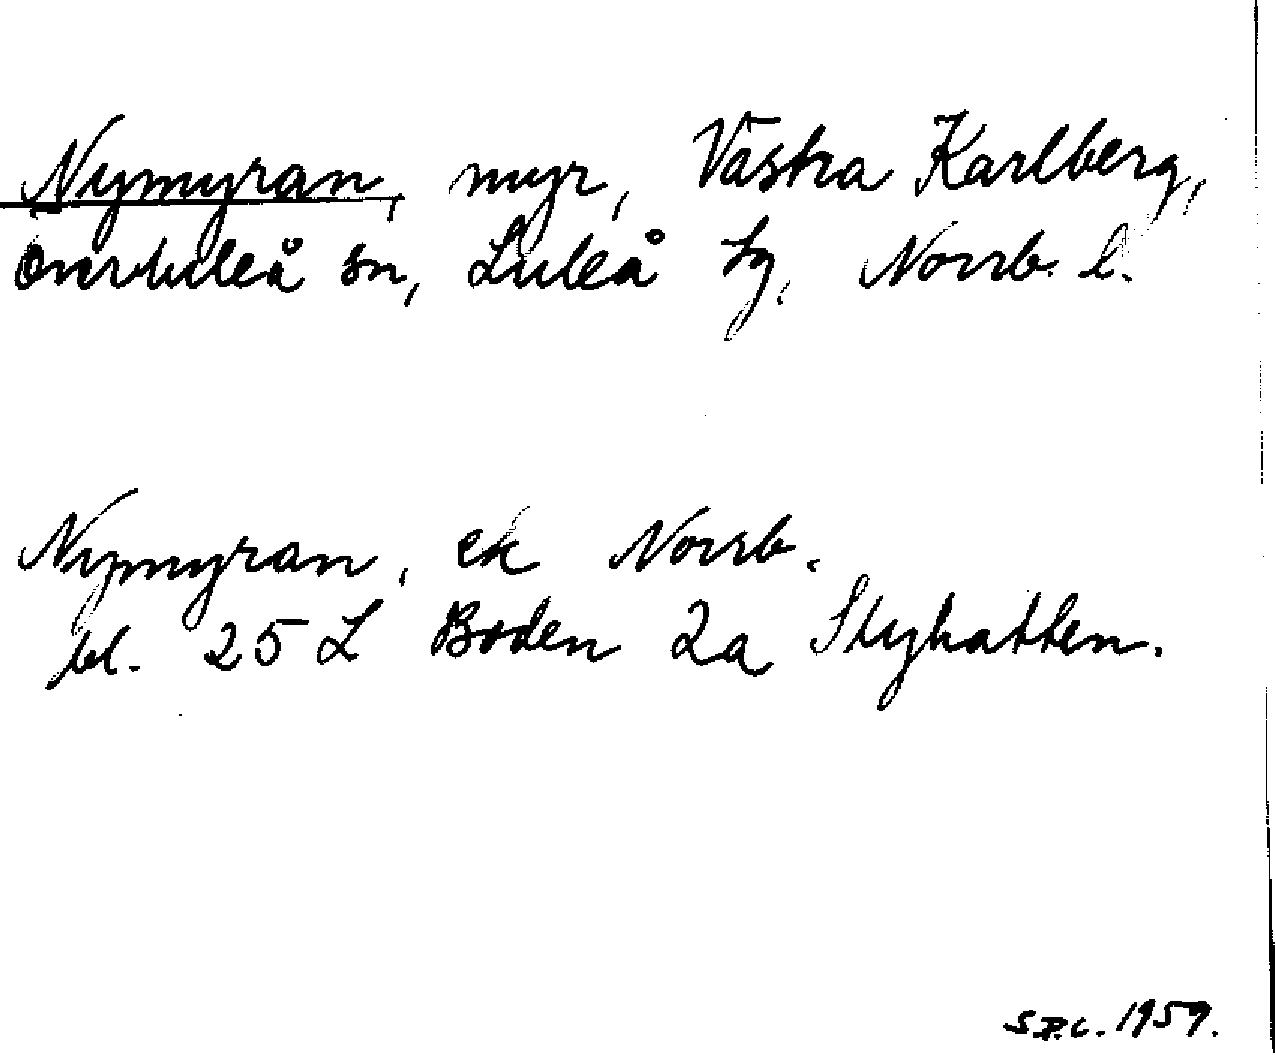 Nymyran, myr, Västra Karlberg,
Överluleå sn, Luleå tg, Norrb. l.
Nymyran, ek Norrb.
bl. 25 L Boden 2a Styhatten.
S.P.C. 1959.